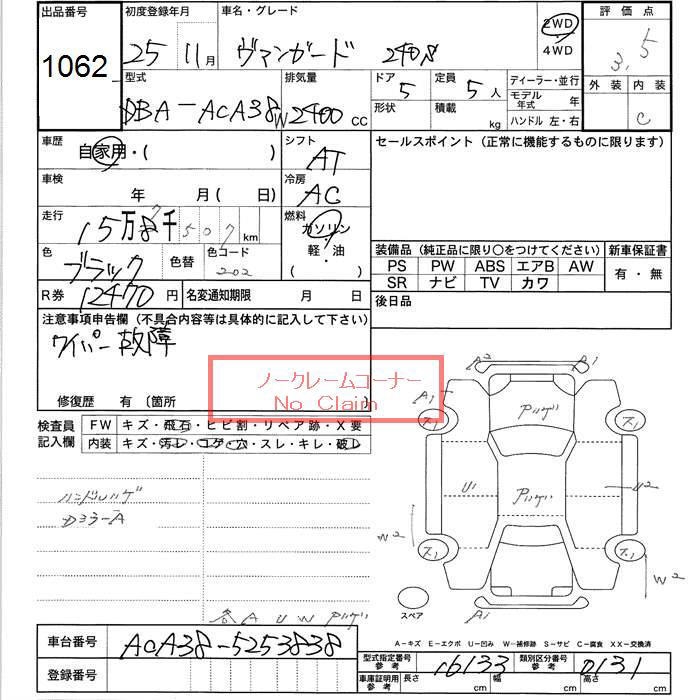 出品番号 初度登録年月 車名・グレード 評価点
1062 25 11月 ヴァンガード 240S 2WD 4WD 3.5
外装 内装 C
型式 排気量 ドア 定員 ディーラー・並行
DBA-ACA38W 2400 CC 5 5人 モデル年式 年
形状 積載 kg ハンドル 左・右
車歴 シフト セールスポイント (正常に機能するものに限ります)
自家用・( ) AT
車検 冷房
年 月 ( 日) AC
走行 燃料
15万 千 507 km ガソリン
色 色替 色コード 軽・油
ブラック 202 ( )
装備品 (純正品に限り〇をつけてください) 新車保証書
PS PW ABS エアB AW 有・無
SR ナビ TV カワ
R券 12470円 名変通知期限 月 日 後日品
注意事項申告欄 (不具合内容等は具体的に記入して下さい)
ワイパー故障
ノークレームコーナー
No Claim
修復歴 有 (箇所
検査員記入欄 FW キズ・飛石・ヒビ割・リペア跡・X要
内装 キズ・汚レ・コゲ・穴・スレ・キレ・破レ
A2 A1
A1
ス1 ス1
U1 U2
ハンドルハゲ
W2
ス1 ス1
W2
スペア A1
各AUW
A-キズ E-エクボ U-凹み W-補修跡 S-サビ C-腐食 XX-交換済
車台番号 ACA38-5253838
型式指定番号 参考 16133 類別区分番号 参考 0131
登録番号
車庫証明用 参考 長さ cm 幅 cm 高さ cm